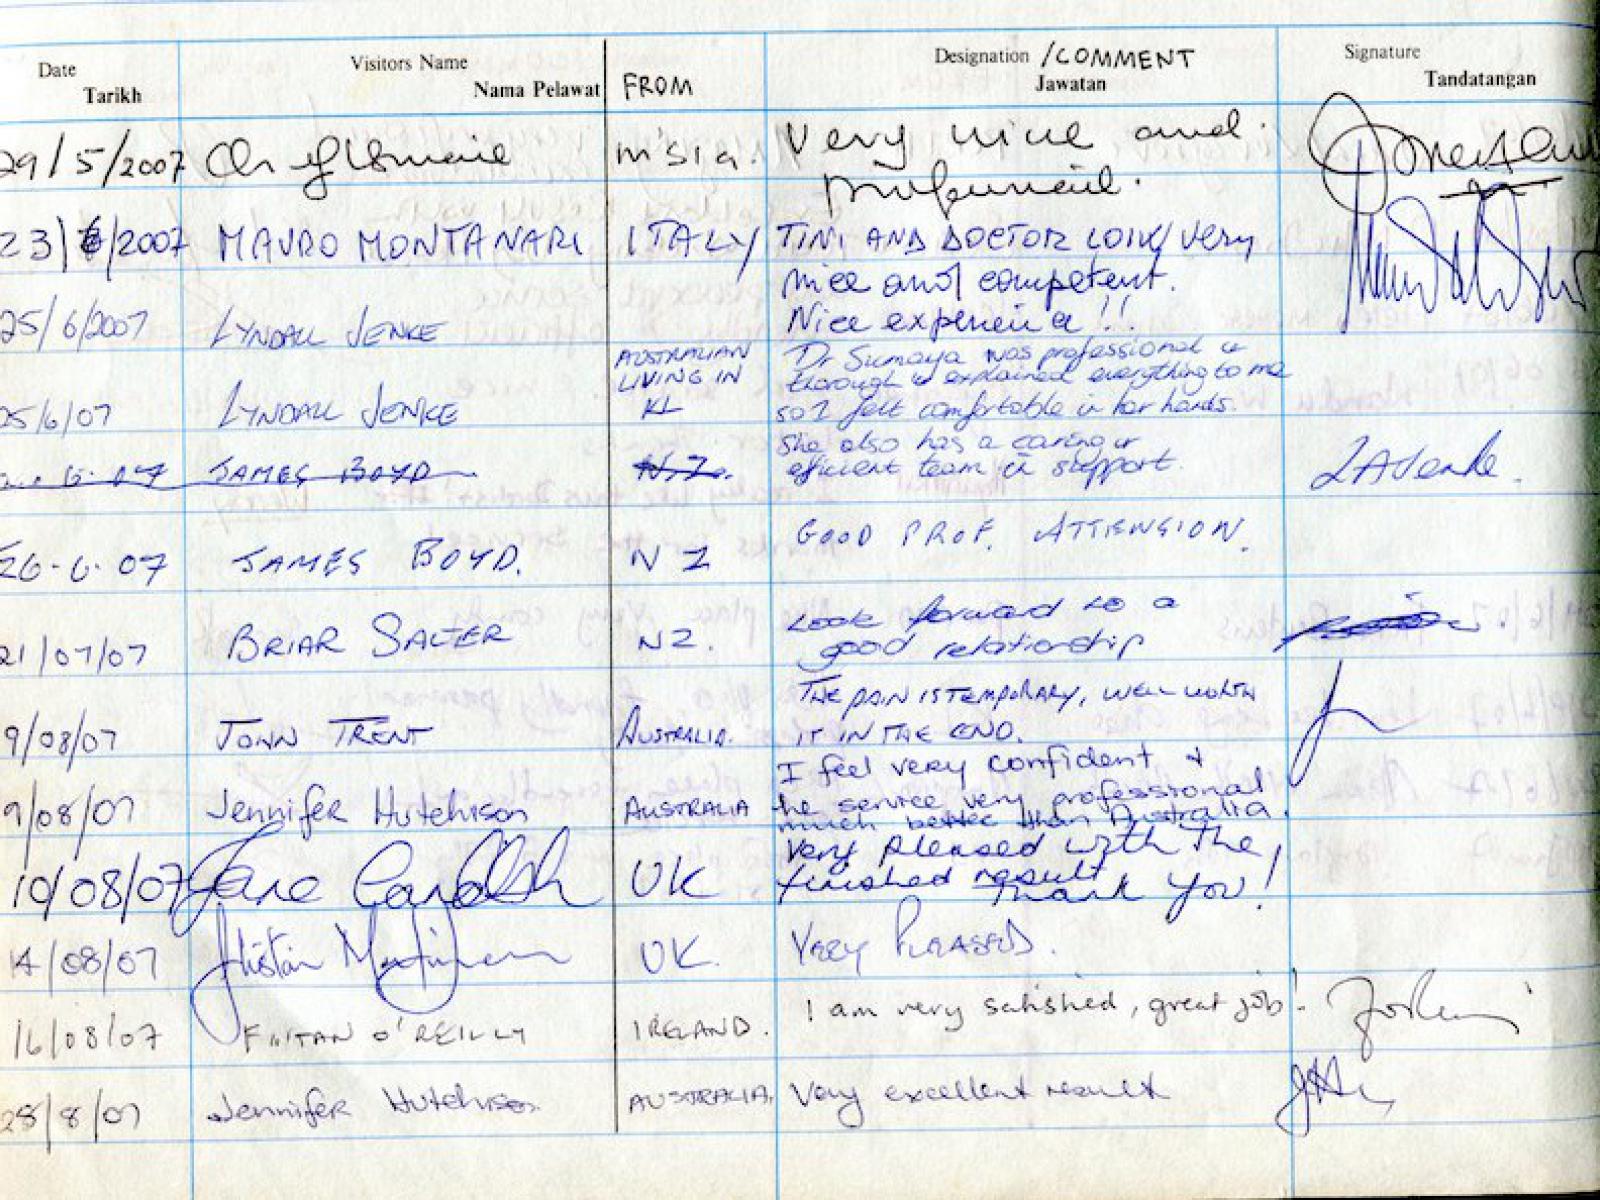 Date Visitors Name Designation /COMMENT Signature
Tarikh Nama Pelawat FROM Jawatan Tandatangan
29/5/2007 M'sia. Very nice and
23/6/2007 MAURO MONTANARI ITALY TINI AND DOCTOR LOOK VERY
nice and competent.
25/6/2007 LYNDALL JENKE Nice experience!!
AUSTRALIAN Dr Sumaya was professional &
LIVING IN thorough & explained everything to me
25/6/07 LYNDALL JENKE KL so I felt comfortable in her hands.
She also has a caring &
6.07 JAMES BOYD NZ. efficient team in support. LAJenke.
26-6-07 JAMES BOYD. NZ GOOD PROF. ATTENSION.
Look forward to a
21/07/07 BRIAR SALTER NZ. good relationship
THE PAIN IS TEMPORARY, WELL WORTH
9/08/07 JOHN TRENT AUSTRALIA. IT IN THE END.
I feel very confident &
9/08/07 Jennifer Hutchison AUSTRALIA the service very professional
much better than Australia.
Very pleased with the
10/08/07 Jane UK finished result Thank You!
14/08/07 Alistair UK. VERY PLEASED.
I am very satisfied, great job!
16/08/07 FINTAN O'REILLY IRELAND.
28/8/07 Jennifer Hutchison AUSTRALIA. Very excellent result